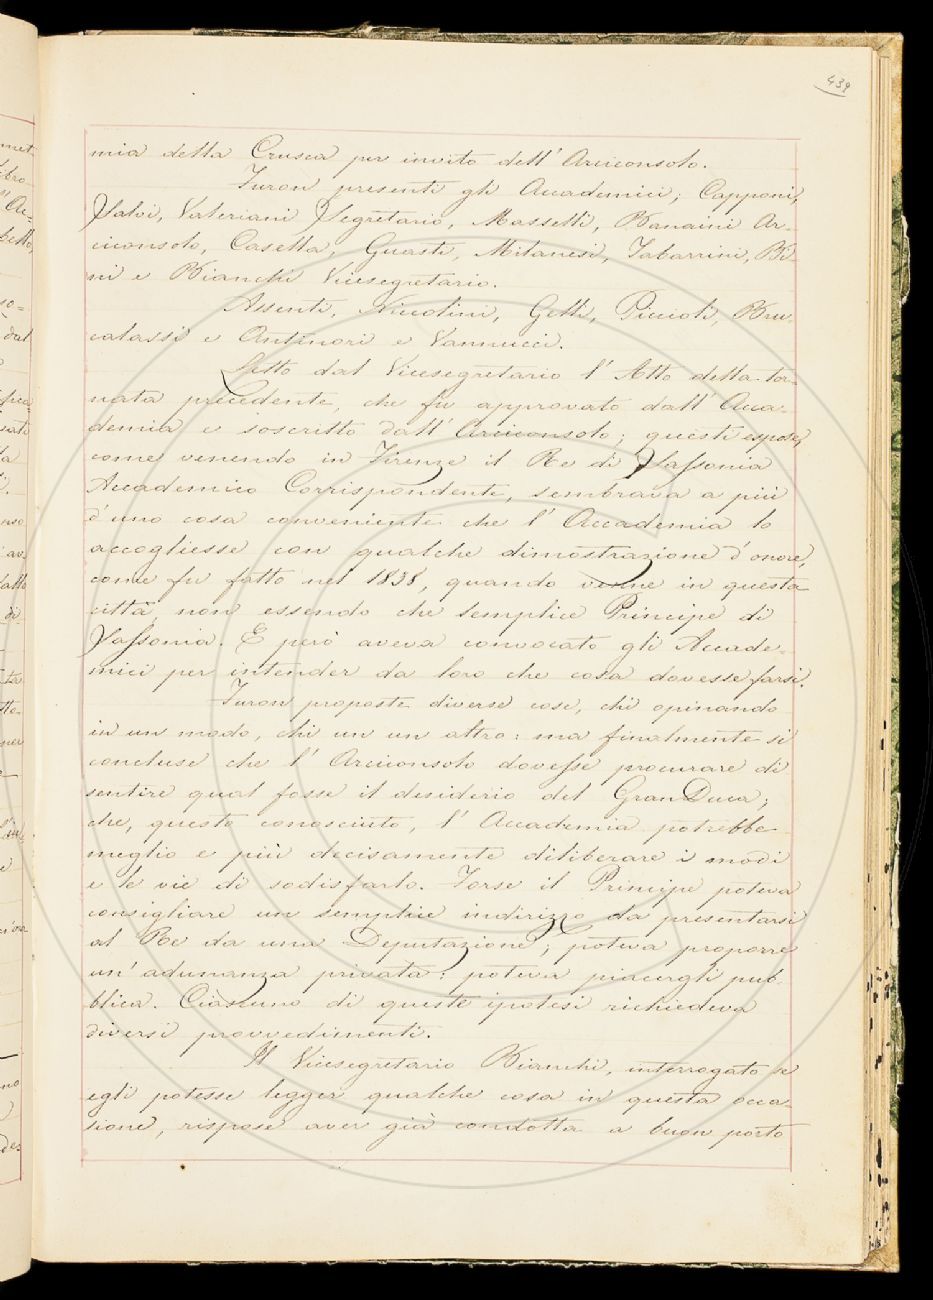 439
mia della Crusca per invito dell' Arciconsolo.
Furon presenti gli Accademici; Capponi,
Salvi, Valeriani Segretario, Masselli, Banaini Ar-
ciconsolo, Casella, Guasti, Milanesi, Tabarrini, Bi
ni e Bianchi Vicesegretario.
Assenti, Niccolini, Gelli, Piccioli, Bru-
calassi e Antinori e Vannucci.
Letto dal Vicesegretario l' Atto della tor-
nata precedente, che fu approvato dall' Acca-
demia e soscritto dall' Arciconsolo; questi espose,
come venendo in Firenze il Re di Sassonia
Accademico Corrispondente, sembrava a più
d' uno cosa conveniente che l' Accademia lo
accogliesse con qualche dimostrazione d' onore,
come fu fatto nel 1838, quando venne in questa
città, non essendo che semplice Principe di
Sassonia. E però aveva convocato gli Accade-
mici per intender da loro che cosa dovesse farsi.
Furon proposte diverse cose, chi opinando
in un modo, chi un un altro: ma finalmente si
concluse che l' Arciconsolo dovesse procurare di
sentire qual fosse il desiderio del GranDuca;
che, questo conosciuto, l' Accademia potrebbe
meglio e più decisamente diliberare i modi
e le vie di sodisfarlo. Forse il Principe poteva
consigliare un semplice indirizzo da presentarsi
al Re da una Deputazione; poteva proporre
un' adunanza privata: poteva piacergli pub-
blica. Ciascuno di queste ipotesi richiedeva
diversi provvedimenti.
Il Vicesegretario Bianchi, interrogato se
egli potesse legger qualche cosa in questa occa-
sione, rispose aver già condotta a buon porto